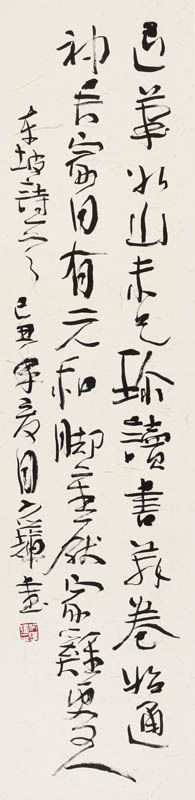 退筆如山未足珍讀書萬卷始通
神君家自有元和脚莫厭家雞更問人
東坡詩 己丑年夏月